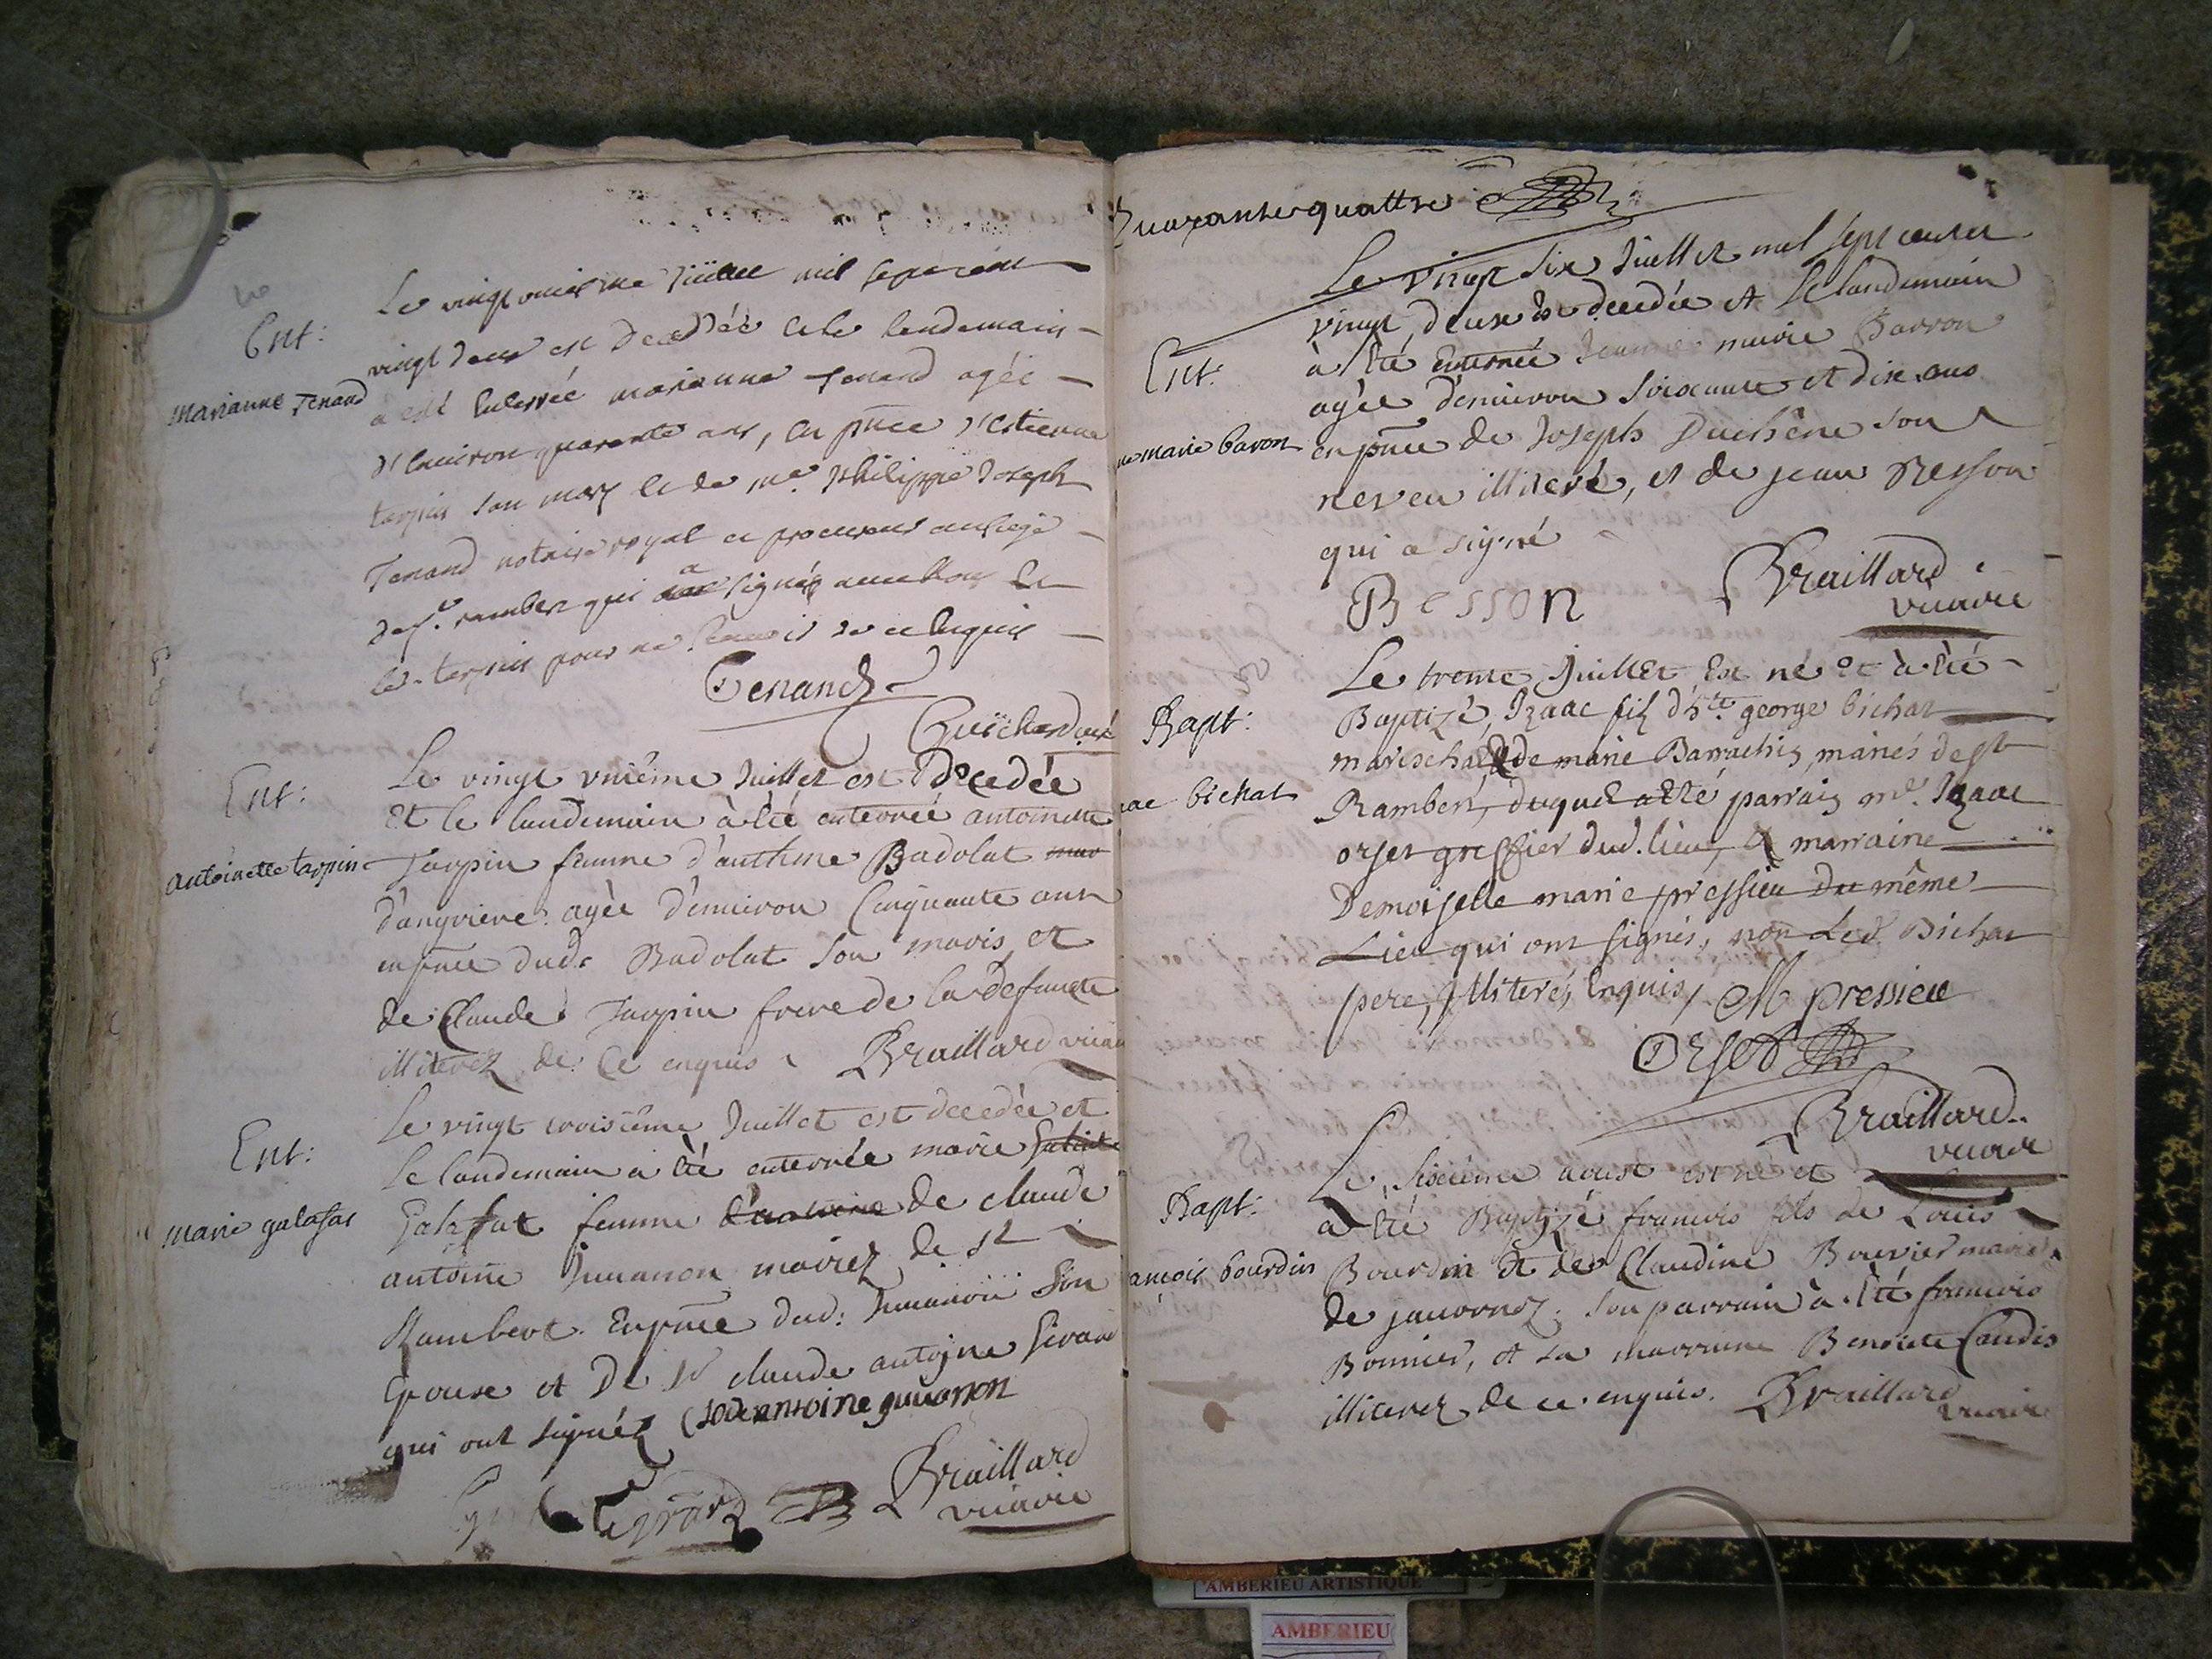 Ent:
Marianne Tenand
Le vingt unieme Juillet mil sept cent
vingt deux est decedée et le lendemain
a esté enterrée marianne Tenand agée
d'environ quarante ans, en pnce d'Estienne
tarpin son mary et de me. Philippe Joseph
Tenand notaire royal et procureur
de st. rambert qui a signé avec nous et
led. tarpin pour ne scavoir de ce enquis
Tenand
Guichard curé
Ent:
antoinette tarpin
Le vingt vniême Juillet est Decedée
Et le landemain à été enterrée antoinette
Tarpin femme d'anthme Badolat
d'angrieve agée d'environ Cinquante ans
en pnce dud. Badolat son maris et
de Claude Tarpin frere de la defuncte
illiterez de Ce enquis Braillard
Ent:
Marie galafat
Le vingt troisiême Juillet est decedée et
Le landemain à été enterrée marie
Galafat femme d'antoine de claude
antoine Juuanon mariez de st
Rambert. En pnce dud: Juuanon son
Epouse et De sr claude antoine Girard
qui ont signéz Clodeantoine guuanon
Girard Braillard
vicaire
Quarante quattre
Ent:
ne marie baron
Le vingt Six Juillet mil sept cents
vingt deux Est decedée et Le landemain
à été enterrée Jeanne marie Barron
agée d'enuiron soixante et dix ans
en pnce de Joseph Duchêne son
neveu illiteré, et de jean Besson
qui a signé
Besson Braillard
vicaire
Bapt:
aac bichat
Le trente Juillet Est né et à été
Baptizé, Izaac fils d'hte. george bichat
mareschal & de marie Barrachin, mariés de st
Rambert, duquel a été parrain me. Izaac
orset greffier dud. lieu, & marraine
Demoiselle marie pressieu du même
Lieu qui ont signés, non Led. Bichat
pere, Illiteré, Enquis, M pressieu
Orset
Braillard
vicaire
Bapt:
ancois bourdin
Le Sixiéme aoust est né et
a été Baptizé francois fils de Louis
Bourdin Et de Claudine Bouvier mariés
de jauornoz. son parrain à été francois
Bonnier, et La marraine Benoite Caudis
illiterez de ce enquis. Braillard
vicaire
AMBERIEU ARTISTIQUE
AMBERIEU